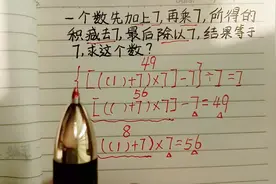 一个数先加上7,再乘7,所得的
积减去7,最后除以7,结果等于
7,求这个数?
49
{[(( )+7)×7]-7}÷7=7
56
[(( )+7)×7]-7=49
8
(( )+7)×7=56